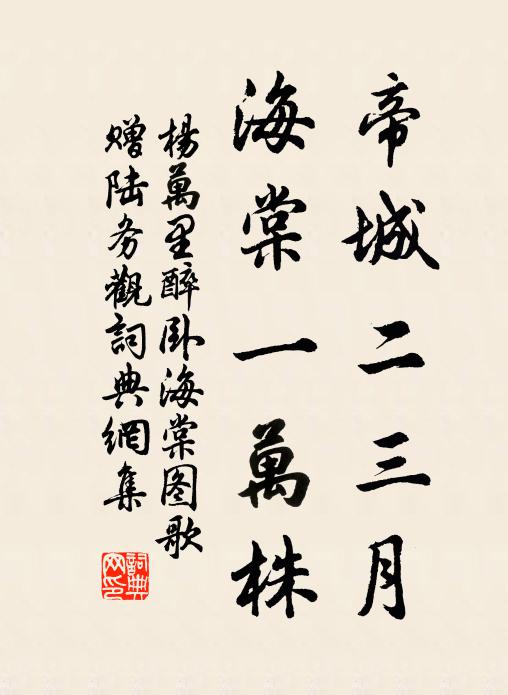 帝城二三月
海棠一萬株
楊萬里醉卧海棠图歌
赠陆务觀詞典網集
詞典网印